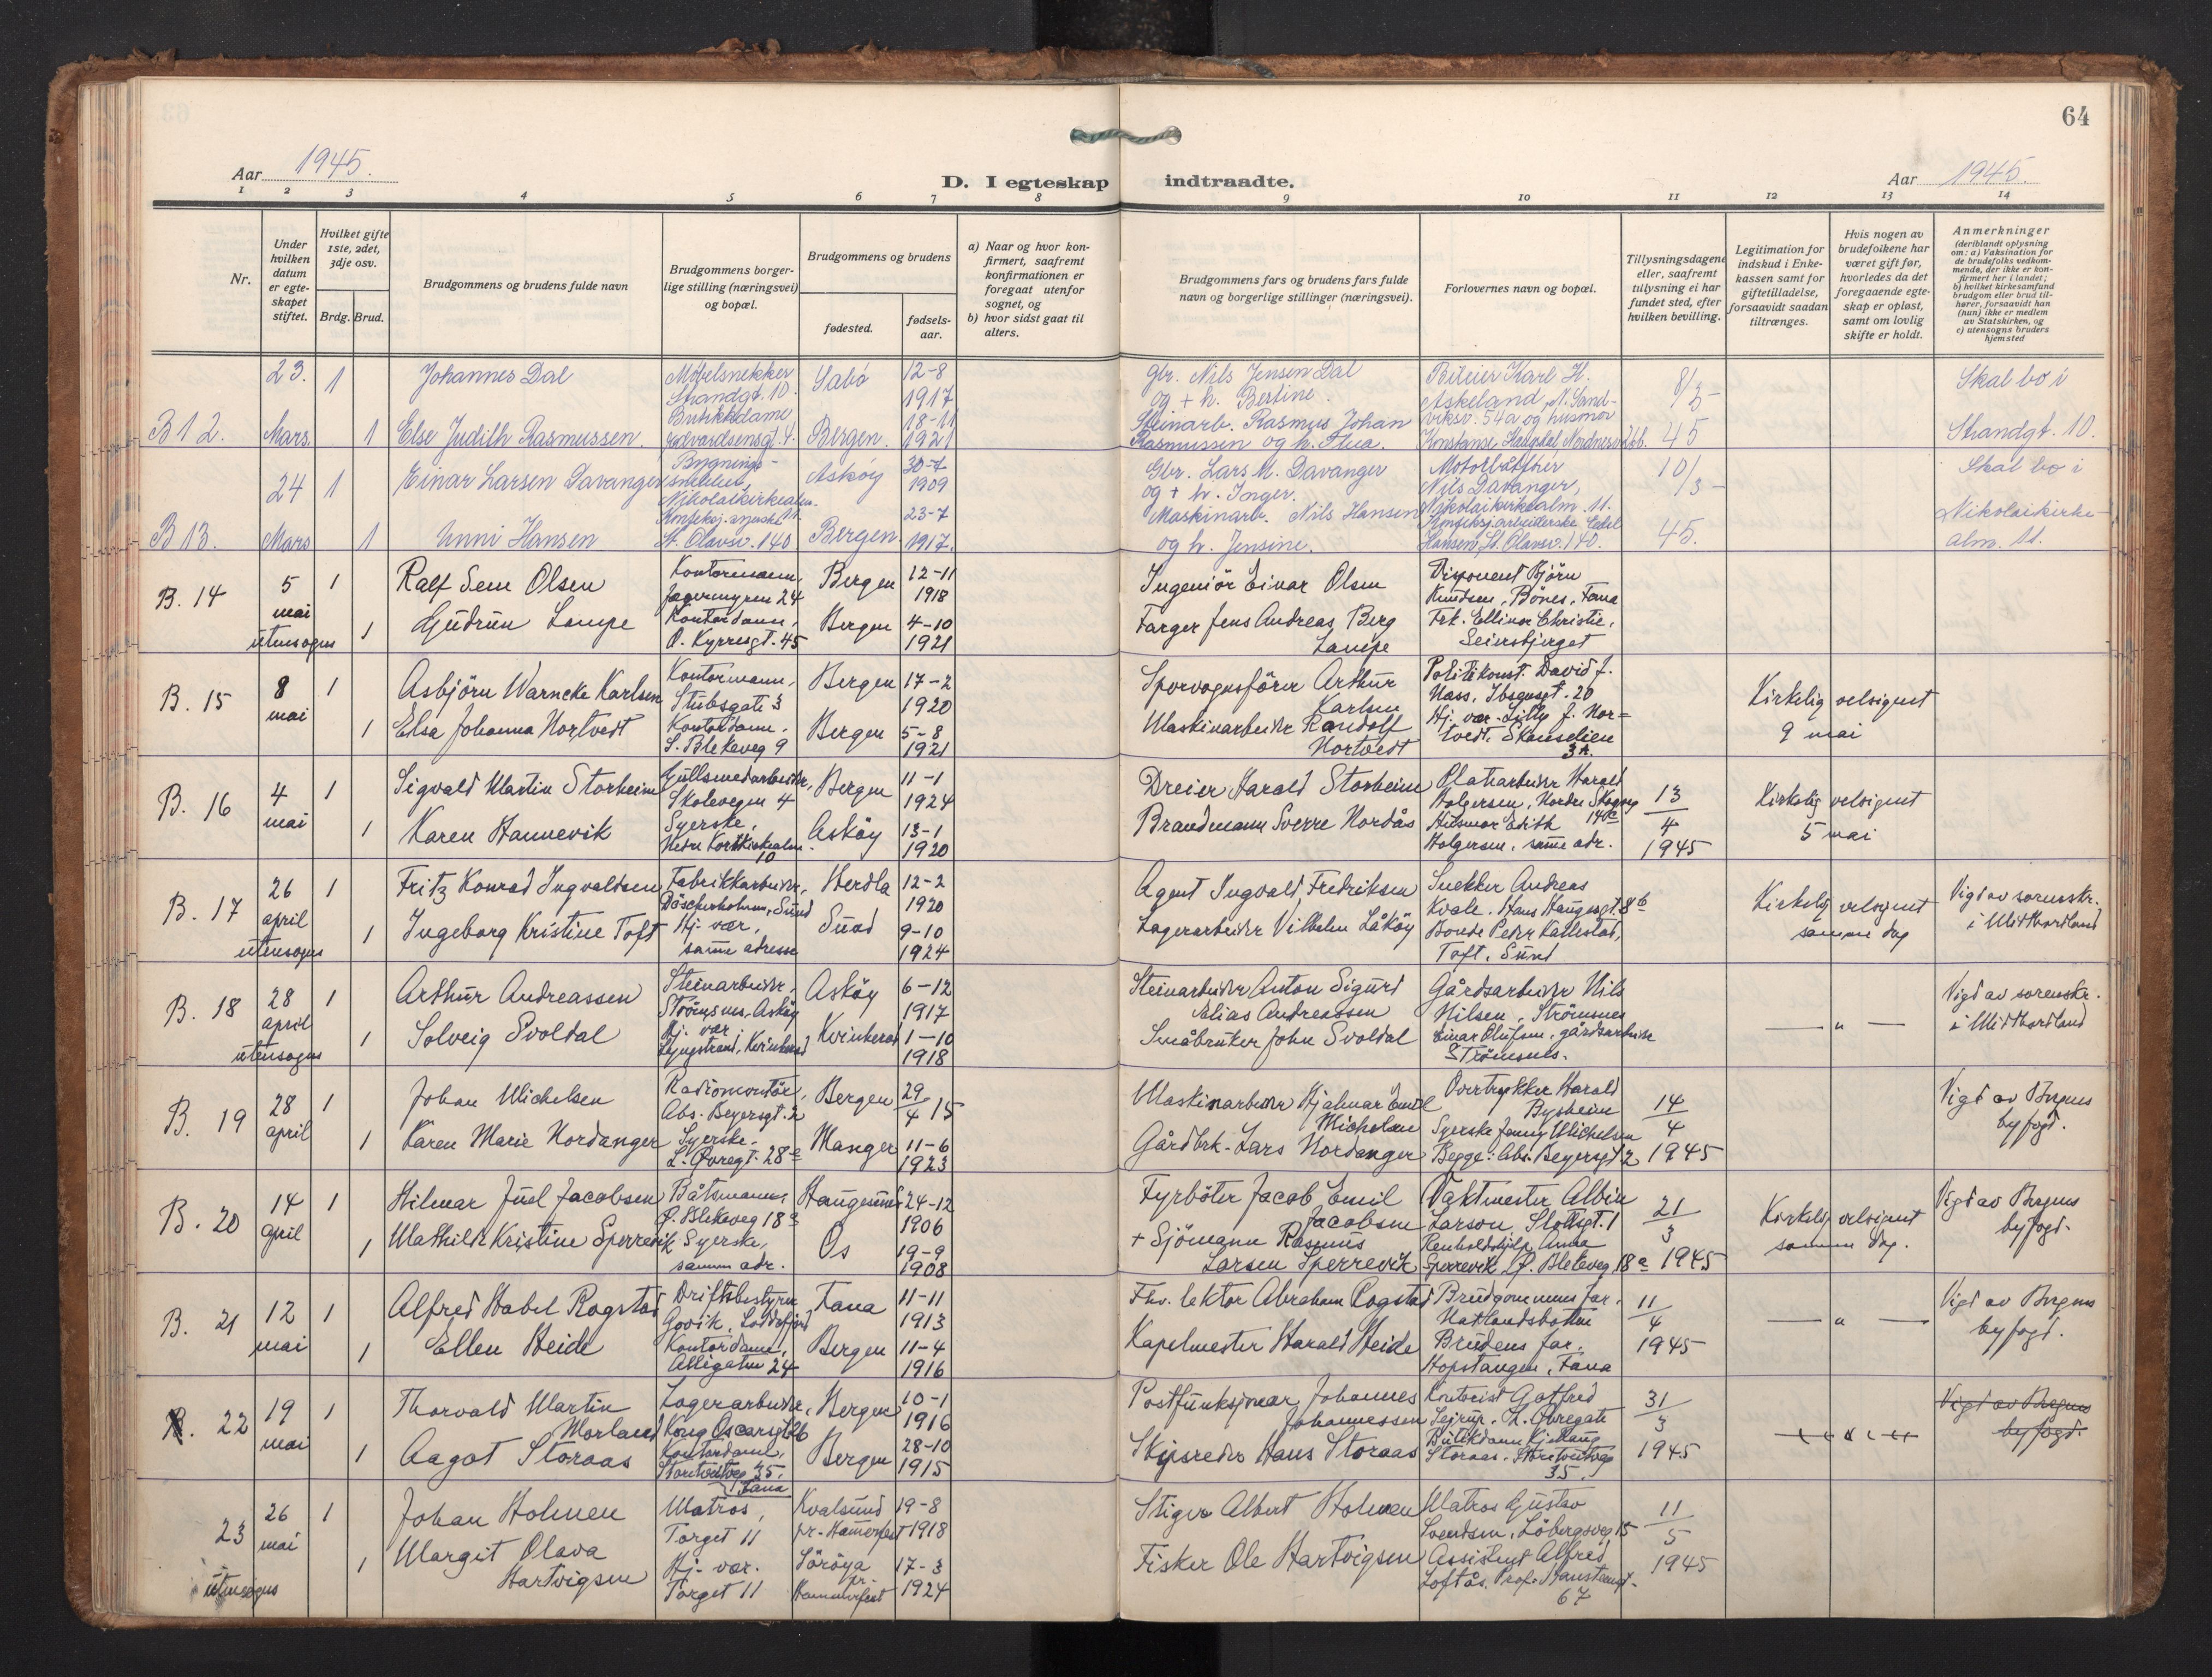 64
Aar 1945.
D. I egteskap indtraadte.
Aar 1945.
1 2 3 4 5 6 7 8 9 10 11 12 13 14
Nr.
Under hvilken datum er egteskapet stiftet.
Hvilket gifte 1ste, 2det, 3dje osv.
Brdg. Brud.
Brudgommens og brudens fulde navn
Brudgommens borgerlige stilling (næringsvei) og bopæl.
Brudgommens og brudens
fødested.
fødselsaar.
a) Naar og hvor konfirmert, saafremt konfirmationen er foregaat utenfor sognet, og
b) hvor sidst gaat til alters.
Brudgommens fars og brudens fars fulde navn og borgerlige stillinger (næringsvei).
Forlovernes navn og bopæl.
Tillysningsdagene eller, saafremt tillysning ei har fundet sted, efter hvilken bevilling.
Legitimation for indskud i Enkekassen samt for giftetilladelse, forsaavidt saadan tiltrænges.
Hvis nogen av brudefolkene har været gift før, hvorledes da det foregaaende egteskap er opløst, samt om lovlig skifte er holdt.
Anmerkninger
(deriblandt oplysning om: a) Vaksination for de brudefolks vedkommende, der ikke er konfirmert her i landet; b) hvilket kirkesamfund brudgom eller brud tilhører, forsaavidt han (hun) ikke er medlem av Statskirken, og c) utensogns bruders hjemsted
B 12. 23. Mars. 1 Johannes Dal Møbelsnekker Strandgt. 10. 12-8 1917
gbr. Nils Jensen Dal og + h. Bertine. Karl H. Askeland, N. Sand- 54a og husmor 8/3 - 45 Skal bo i Strandgt. 10.
1 Else Judith Rasmussen. Butikkdame Bergen. 18-11 1921
Steinarb. Rasmus Johan Rasmussen og h. Konstanse
B 13. 24 Mars 1 Einar Larsen Davanger Bygnings- Nikolaikirkealm. Askøy 30-7 1909
Gbr. Lars M. Davanger og + h. Inger. Nils Davanger, Nikolaikirkealm. 11. 10/3 - 45. Skal bo i Nikolaikirkealm. 11.
1 Unni Hansen St. Olavsv. 140 Bergen. 23-7 1917.
Maskinarb. Nils Hansen og h. Jensine. Hansen, St. Olavsv. 140.
B. 14 5 mai utensogns 1 Ralf Sem Olsen Kontormann, 24 Bergen 12-11 1918
Ingeniør Einar Olsen Disponent Bjørn Knudsen, Bönes, Fana
1 Gudrun Lampe Kontordame, O. Kyrresgt. 45 Bergen 4-10 1921
Farger Jens Andreas Berg Lampe Frk. Ellinor Christie, Seiersbjerget
B. 15 8 mai 1 Asbjörn Warncke Karlsen Kontormann, Stubsgate 3 Bergen 17-2 1920
Sporvognsförer Arthur Karlsen Politikonst. David J. Næss, Ibsensgt. 20 Kirkelig velsignet 9 mai
1 Elsa Johanna Hortvedt Kontordame, S. Blekeveg 9 Bergen 5-8 1921
Maskinarbeider Randolf Hortvedt Hj. vær. Lilly J. Hortvedt, Skanselien 3A.
B. 16 4 mai 1 Sigvald Martin Storheim Gullsmedarbeider, Skolevegen 4 Bergen 11-1 1924
Dreier Harald Storheim Platearbeider Harald Holgersen, Nordre Skogveg 13/4 1945 Kirkelig velsignet 5 mai
1 Karen Hannevik Syerske, Nedre Korskirkealm. 10 Askøy 13-1 1920
Brandmann Sverre Nordås Husmor Edith Holgersen, samme adr.
B. 17 26 april utensogns 1 Fritz Konrad Ingvaldsen Fabrikkarbeider, Sund Herdla 12-2 1920
Agent Ingvald Fredriksen Snekker Andreas Kvale, Hans Haugesgt. 8b Kirkelig velsignet samme dag Vigd av sorenskr. i Midthordland
1 Ingeborg Kristine Toft Hj. vær, samme adresse Sund 9-10 1924
Lagerarbeider Vilhelm Låköy Bonde Peder Kallestad, Toft, Sund
B. 18 28 april utensogns 1 Arthur Andreassen Steinarbeider, Strömsnes, Askøy Askøy 6-12 1917
Steinarbeider Anton Sigurd Elias Andreassen Gårdsarbeider Nils Nilsen, Strömsnes — " — Vigd av sorenskr. i Midthordland
1 Solveig Svoldal Hj. vær Kvinherad Kvinherad 1-10 1918
Småbruker John Svoldal Einar Olufsen, gårdsarbeider Strömsnes.
B. 19 28 april 1 Johan Michelsen Radiomontör, Abs. Beyersgt. 2 Bergen 29/4 15
Maskinarbeider Hjalmar Emil Michelsen Overtrykker Harald Bysheim 14/4 1945 Vigd av Bergens byfogd.
1 Karen Marie Nordanger Syerske. L. Øvregt. 28a Manger 11-6 1923
Gårdbrk. Lars Nordanger Syerske Jenny Michelsen Begge: Abs. Beyersgt 2
B. 20 14 april 1 Hilmar Juel Jacobsen Båtsmann, Ø. Blekeveg 18a Haugesund 24-12 1906
Fyrböter Jacob Emil Jacobsen Vaktmester Albin Larson, Slottsgt. 1 21/3 1945 Kirkelig velsignet samme dag. Vigd av Bergens byfogd.
1 Mathilde Kristine Sperrevik Syerske, samme adr. Os 19-9 1908
+ Sjömann Rasmus Larsen Sperrevik Renholdshjelp Anna Sperrevik, Ø. Blekeveg 18a
B. 21 12 mai 1 Alfred Habel Rogstad Driftsbestyrer Loddefjord Fana 11-11 1913
Fhv. lektor Abraham Rogstad Brudgommens far, Natlandsbotten 11/4 1945 — " — Vigd av Bergens byfogd.
1 Ellen Heide Kontordame, Allégaten 24 Bergen 11-4 1916
Kapelmester Harald Heide Brudens far. Hopstangen, Fana
B. 22 19 mai 1 Thorvald Martin Morland Lagerarbeider, Kong Oscarsgt 26 Bergen 10-1 1916
Postfunksjonær Johannes Johannessen Kontorist Gotfred Sejrup, L. Øvregate 31/3 1945 Vigd av Bergens byfogd.
1 Aagot Storaas Kontordame, Storetveitveg 35. Fana Bergen 28-10 1915
Skipsreder Hans Storaas Butikdame Storaas, Storetveitveg 35.
23 26 mai utensogns 1 Johan Holmen Matros, Torget 11 Kvalsund pr. Hamerfest 19-8 1918
Stiger Albert Holmen Matros Gustav Svendsen, Löbergsveg 15 11/5 1945
1 Margit Olava Hartvigsen Hj. vær. Torget 11 Söröya pr. Hammerfest 17-3 1924
Fisker Ole Hartvigsen Assistent Alfred Loftås, Prof. Hansteensgt. 67